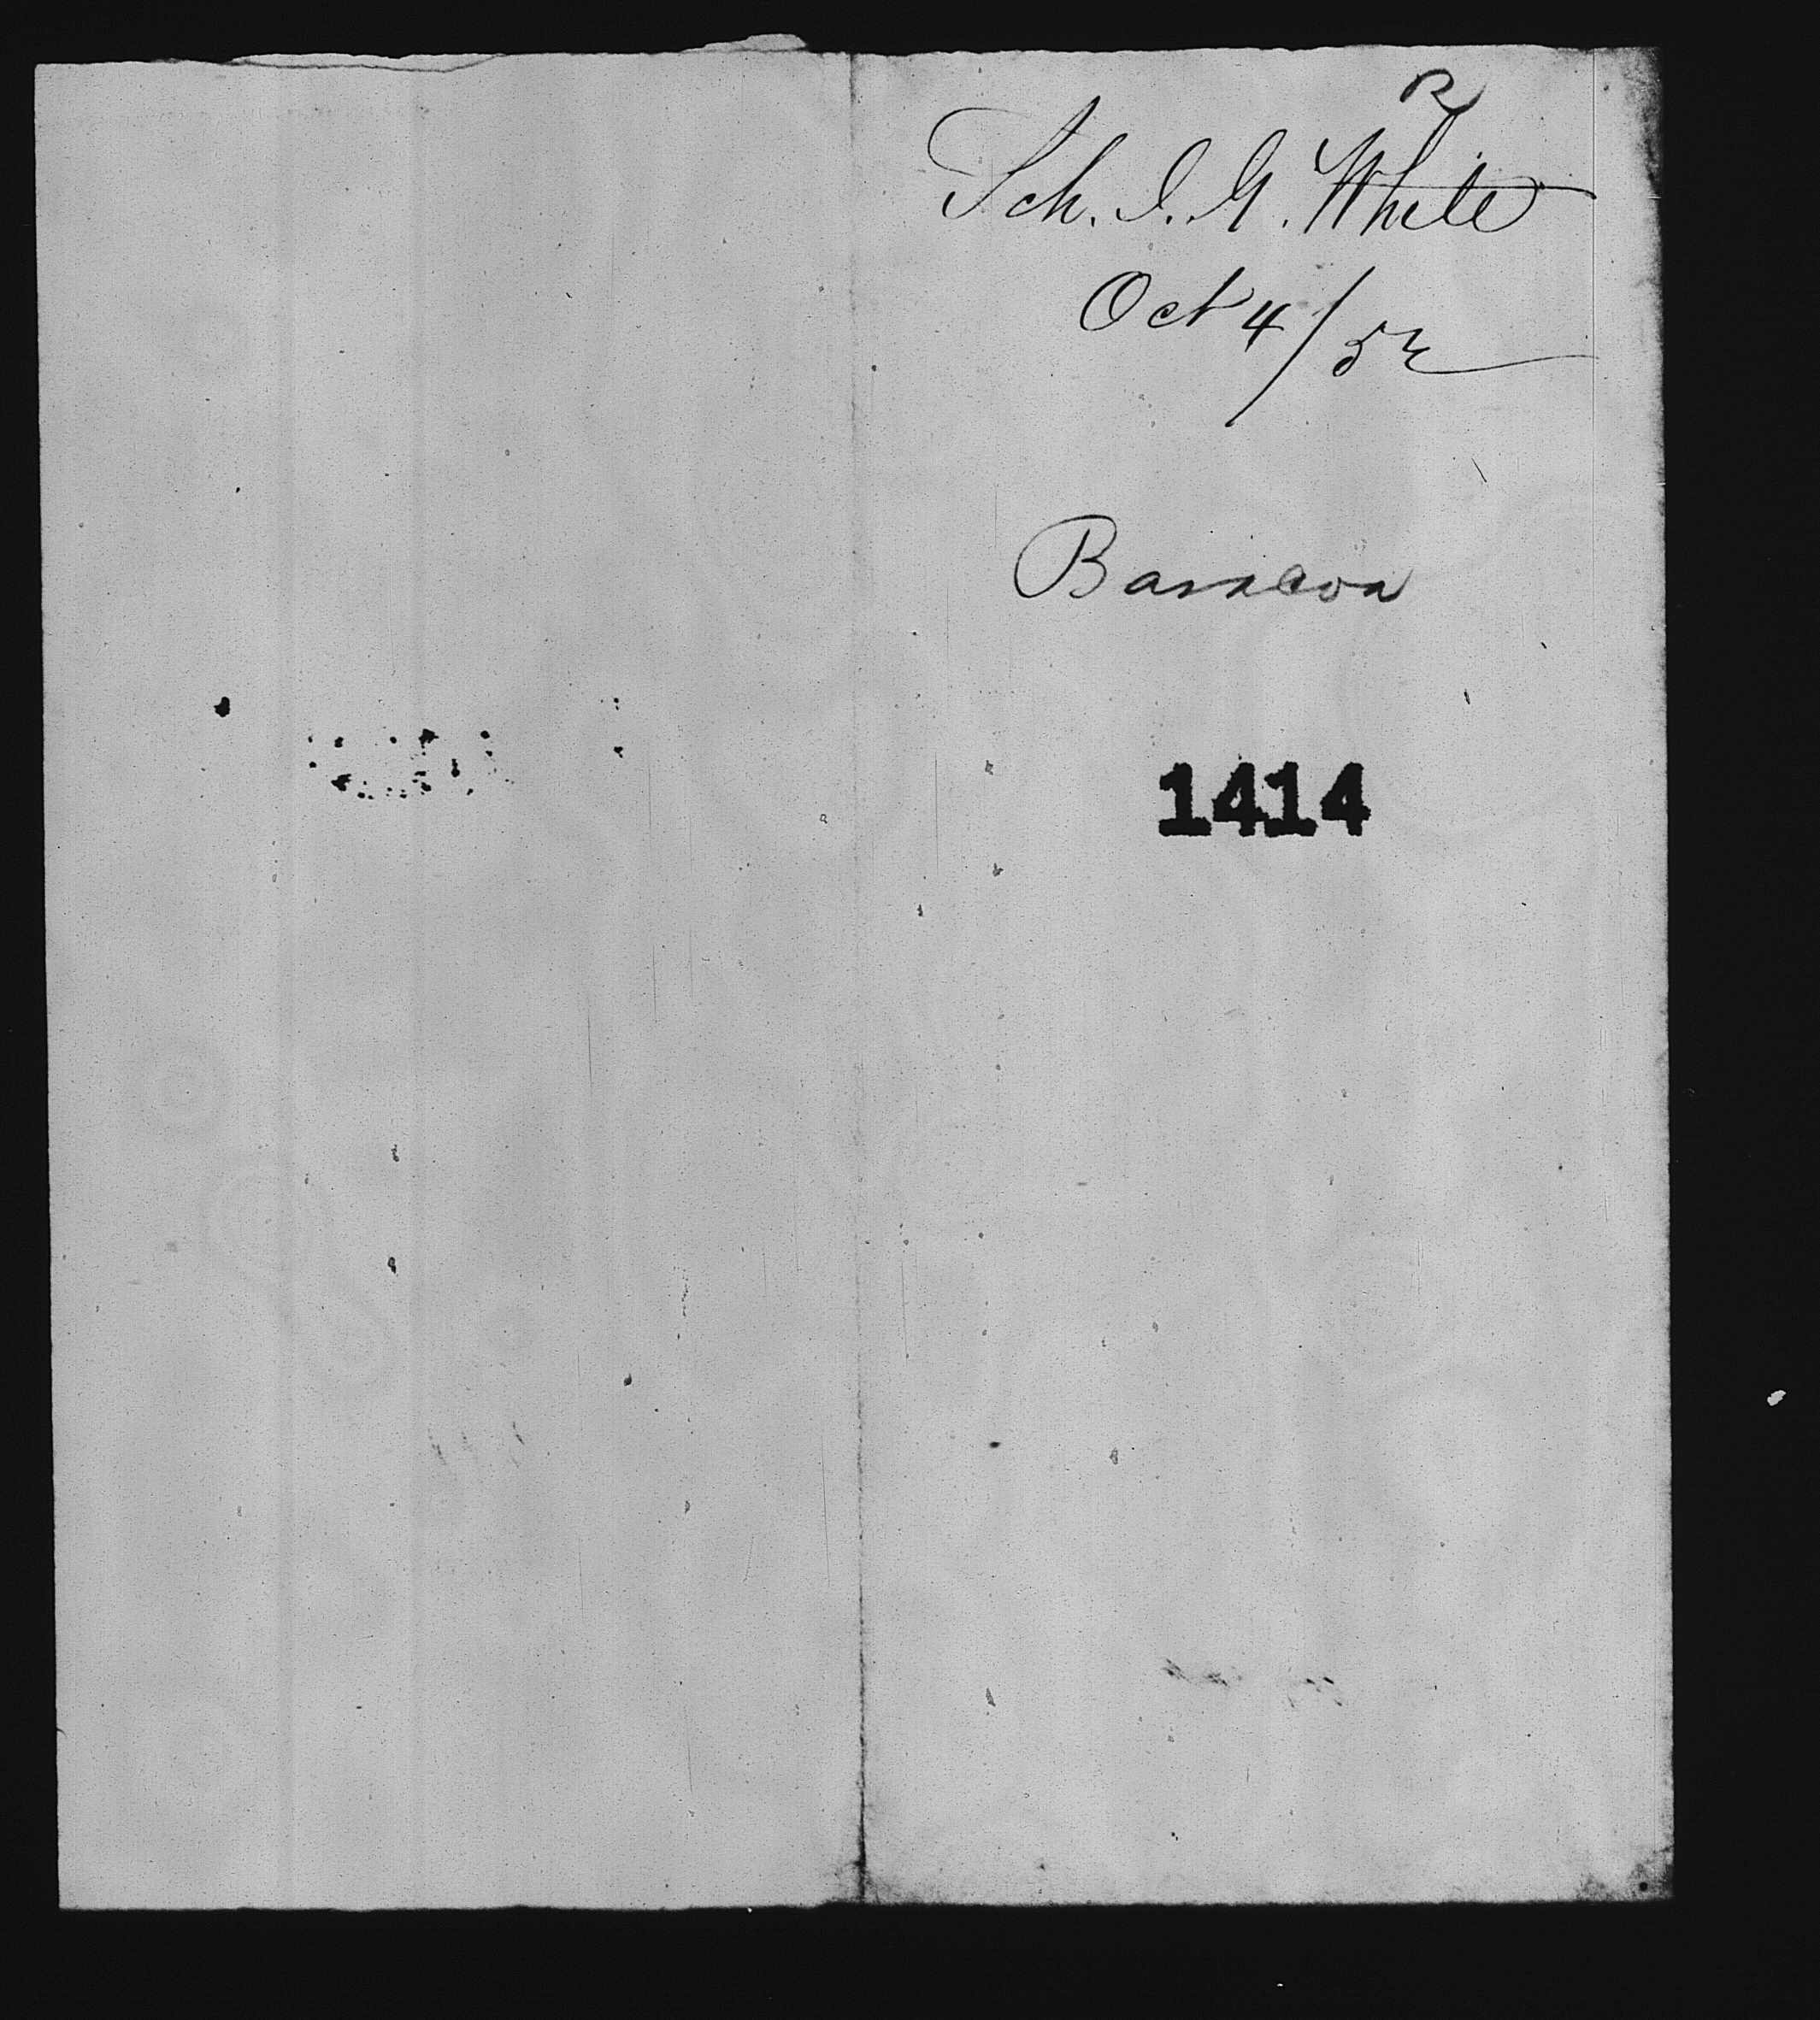 R
Sch. I. G. White
Oct 4/52
Baracoa
1414